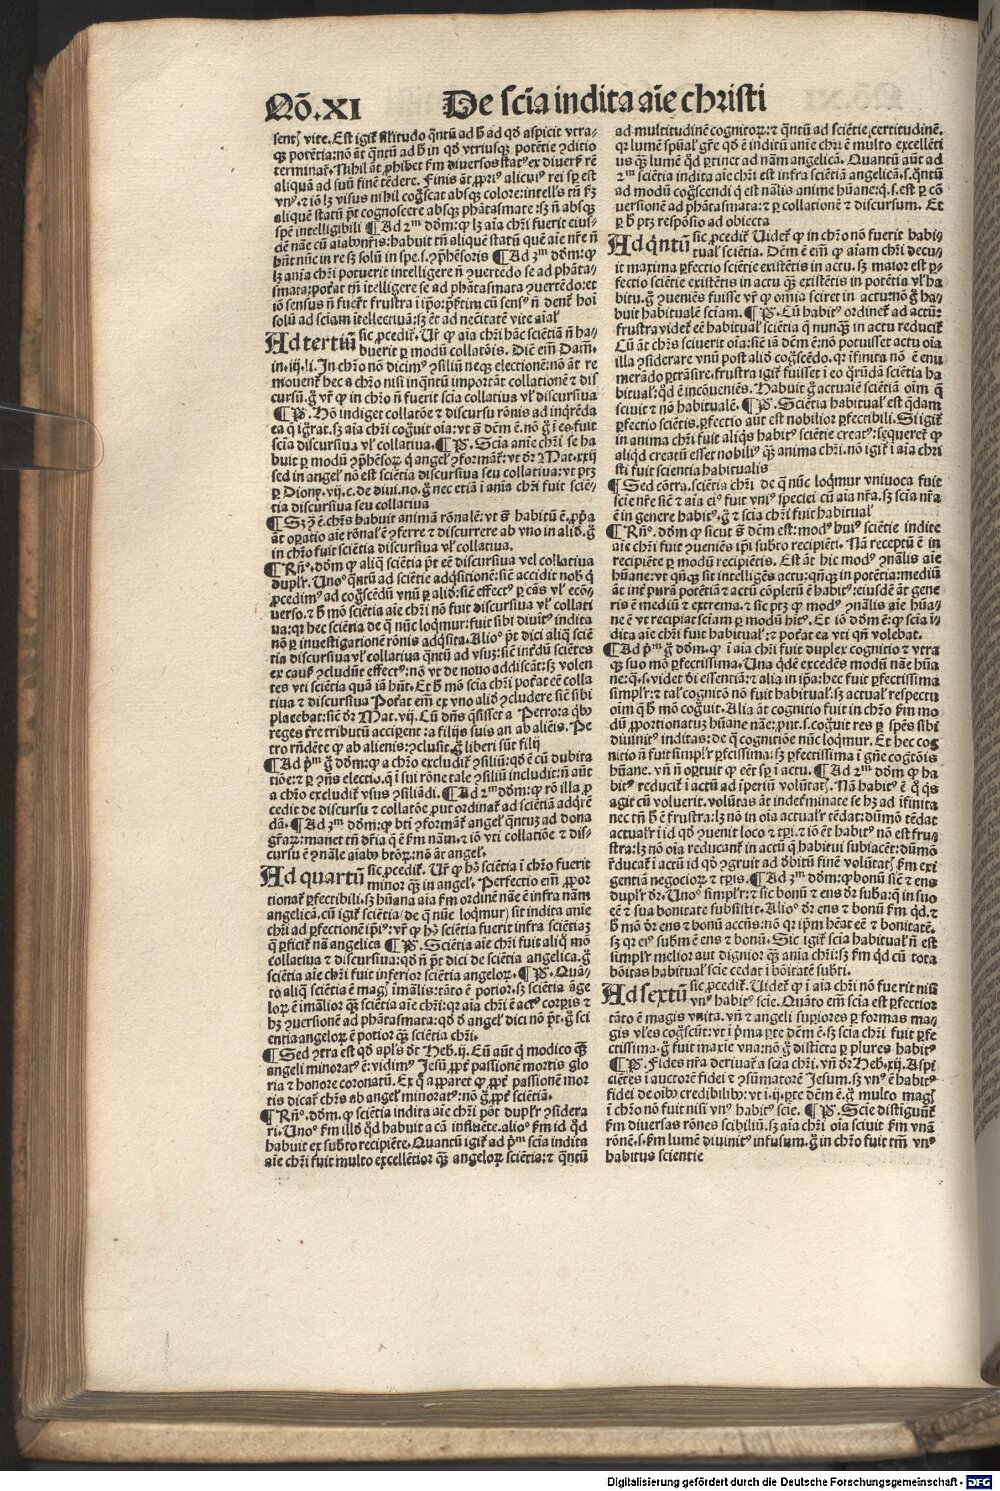 Qō.XI De scīa indita aīe christi
sentʒ vite. Est igiť ſil'itudo qntū ad h̄ ad qd̄ aspicit vtra⸗
qʒ potētia: nō āt qntū ad h̄ in qd̄ vtriusqʒ potētie ꝯditio
terminať. Nihil āt ꝓhibet ẜm diuersos statꝰ ex diuerſ rē
aliquā ad suū finē tēdere. Finis āt ꝓpriꝰ alicuiꝰ rei sꝑ est
vnꝰ. ⁊ iō lʒ visus nihil cog̃scat absqʒ colore: intellꝰs tn̄ ẜʒ
aliquē statū pt̄ cognoscere absqʒ phātasmate: sʒ n̄ absqʒ
spē intelligibili ¶ Ad 2ᵐ dōm: ꝙ lʒ aīa chr̄i fuerit eius⸗
dē nāe cū aīabꝰ nr̄is: habuit tn̄ aliquē statū quē aīe nr̄e n̄
hn̄t nūc in re sʒ solū in spe. s. ꝯp̄hēsoris ¶ Ad 3ᵐ dōm: ꝙ
lʒ aīa chr̄i potuerit intelligere n̄ ꝯuertēdo se ad phāta⸗
smata: poťat tn̄ ītelligere se ad phātasmata ꝯuertēdo: et
iō sensus n̄ fueřt frustra ī ip̄o: p̄sertim cū sensꝰ n̄ denť hoī
solū ad sciam ītellectiuā: sʒ ēt ad necitatē vite aīal'
Ad tertiū sic ꝓcediť. Ur̄ ꝙ aīa chr̄i hāc sciētiā n̄ ha⸗
buerit ꝑ modū collatōis. Dīc em̄ Dam̄.
in. iij. li. In chr̄o nō dicimꝰ ꝯsiliū neqʒ electionē: nō āt re
mouent̄ hec a chr̄o nisi inqntū importāt collationē ⁊ dis
cursū. g̊ vr̄ ꝙ in chr̄o n̄ fuerit scīa collatiua vl' discursiua
¶ P̄. Hō indiget collatōe ⁊ discursu rōnis ad inqrēda
ea q̄ ig̃rat. sʒ aīa chr̄i cog̃uit oīa: vt s̄ dēm ē. nō g̊ ī eo fuit
scīa discursiua vl' collatiua. ¶ P̄. Scīa anīe chr̄i se ha
buit ꝑ modū ꝯp̄hēsoꝝ q̄ angel' ꝯformāť: vt dr̄ Mat. xxij
sed in angel' nō est sciētia discursiua seu collatiua: vt ptʒ
ꝑ Dionꝭ. vij. c. de diui. no. g̊ nec etiā ī anīa chr̄i fuit sciē⸗
tia discursiua seu collatiua
¶ Sʒ ꝯͣ ē. chr̄s habuit animā rōnalē: vt s̄ habitū ē. ꝓp̄a
āt oꝑatio aīe rōnal' ē ꝯferre ⁊ discurrere ab vno in aliđ. g̊
in chr̄o fuit sciētia discursiua vl' collatiua.
¶ Rn̄ᵒ. dōm ꝙ aliq̄ sciētia pt̄ eē discursiua vel collatiua
duplr̄. Unoᵒ qntū ad sciētie adq̄sitionē: sic̄ accidit nob̄ q̄
ꝓcedimꝰ ad cog̃scēdū vnū ꝑ aliđ: sic̄ effectꝰ ꝑ cās vl' ecō⸗
uerso. ⁊ h̄ mō sciētia aīe chr̄i nō fuit discursiua vl' collati
ua: qr hec sciētia de q̄ nūc loq̄mur: fuit sibi diuitꝰ indita
nō ꝑ inuestigationē rōnis adq̄sita. Alioᵒ pt̄ dici aliq̄ sciē
tia discursiua vl' collatiua qntū ad vsuʒ: sic̄ int̄dū sciētes
ex causꝭ ꝯcludūt effectꝰ: nō vt de nouo addiscāt: sʒ volen
tes vti sciētia quā iā hn̄t. Et h̄ mō scīa chr̄i poťat eē colla
tiua ⁊ discursiua Poťat em̄ ex vno aliđ ꝯcludere sic̄ sibi
placebat: sic̄ dr̄ Mat. vij. Cū dn̄s q̄sisset a Petro: a qbꝰ
reges tr̄e tributū acciꝑent: a filijs suis an ab aliēis. Pe
tro rn̄dēte ꝙ ab alienis: ꝯclusit. g̊ liberi sūt filij
¶ Ad p̄ᵐ g̊ dōm: ꝙ a chr̄o excludiť ꝯsiliū: qd̄ ē cū dubita
tiōe: ⁊ ꝑ ꝯn̄s electio. q̄ ī sui rōne tale ꝯsiliū includit: n̄ aūt
a chr̄o excludiť vsus ꝯsiliādi. ¶ Ad 2ᵐ dōm: ꝙ rō illa ꝓ
cedit de discursu ⁊ collatōe ꝓut ordinať ad sciētiā adq̄rē
dā. ¶ Ad 3ᵐ dōm: ꝙ bt̄i ꝯformāť angel' qntuʒ ad dona
gr̄aꝝ: manet tn̄ dr̄ia q̄ ē ẜm nām. ⁊ iō vti collatiōe ⁊ dis⸗
cursu ē ꝯnāle aīabꝰ btōꝝ: nō āt angel'.
Ad quartū sic ꝓcediť. Ur̄ ꝙ hꝰ sciētia ī chr̄o fuerit
minor qʒ̄ in angel'. Perfectio em̄ ꝓpor
tionať ꝑfectibili. sʒ hūana aīa ẜm ordinē nāe ē infra nām
angelicā. cū igiť sciētia (de q̄ nūc loq̄mur) sit indita anīe
chr̄i ad ꝑfectionē ip̄iꝰ: vr̄ ꝙ hꝰ sciētia fuerit infra sciētiaʒ
q̄ ꝑficiť nā angelica ¶ P̄. Sciētia aīe chr̄i fuit aliq̄ mō
collatiua ⁊ discursiua: qd̄ n̄ pt̄ dici de sciētia angelica. g̊
sciētia aīe chr̄i fuit inferior sciētia angeloꝝ. ¶ P̄. Quā⸗
to aliq̄ sciētia ē magꝭ īmālis: tāto ē potior. sʒ sciētia āge
loꝝ ē imālior qʒ̄ sciētia aīe chr̄i: qr aīa chr̄i ē actꝰ corꝑis ⁊
hʒ ꝯuersionē ad phātasmata: qd̄ d̄ angel' dici nō pt̄. g̊ sci
entia angeloꝝ ē potior qʒ̄ sciētia chr̄i.
¶ Sed ꝯtra est qd̄ apl's dt̄ Heb. ij. Eū aūt q̄ modico qʒ̄
angeli minoratꝰ ē: vidimꝰ Jesū ꝓpť passionē mortis glo
ria ⁊ honore coronatū. Ex q̄ apparet ꝙ ꝓpť passionē mor
tis dicať chr̄s ab angel' minoratꝰ: nō g̊ ꝓpť sciētiā.
¶ Rn̄ᵒ. dōm. ꝙ sciētia indita aīe chr̄i pōt duplr̄ ꝯsidera
ri. Unoᵒ ẜm illđ qđ habuit a cā influēte. alioᵒ ẜm id qđ
habuit ex sub̄to recipiēte. Quantū igiť ad p̄ᵐ scīa indita
aīe chr̄i fuit multo excellētior qʒ̄ angeloꝝ sciētia: ⁊ qntū
ad multitudinē cognitoꝝ: ⁊ qntū ad sciētie certitudinē.
qr lumē sp̄ual' gr̄e qd̄ ē inditū anīe chr̄i ē multo excellēti
us qʒ̄ lumē qđ ꝑtinet ad nām angelicā. Quantū aūt ad
2ᵐ sciētia indita aīe chr̄i est infra sciētiā angelicā. s. qntū
ad modū cog̃scendi q̄ est nālis anime hūane: q̄. s. est ꝑ cō
uersionē ad phātasmata: ⁊ ꝑ collationē ⁊ discursum. Et
ꝑ h̄ ptʒ respōsio ad obiecta
Ad qntū sic ꝓcediť. Uideť ꝙ in chr̄o nō fuerit habi⸗
tual' sciētia. Dēm ē em̄ ꝙ aīam chr̄i decu⸗
it maxima ꝑfectio sciētie existētis in actu. sʒ maior est ꝑ⸗
fectio sciētie existētis in actu qʒ̄ existētis in potētia vl' ha
bitu. g̊ ꝯueniēs fuisse vr̄ ꝙ omīa sciret in actu: nō g̊ ha⸗
buit habitualē sciam. ¶ P̄. Cū habitꝰ ordineť ad actū:
frustra videť eē habitual' sciētia q̄ nunqʒ̄ in actu reduciť
Cū āt chr̄s sciuerit oīa: sic̄ iā dēm ē: nō potuisset actu oīa
illa ꝯsiderare vnū post aliđ cog̃scēdo. qr īfinita nō ē enu
merādo ꝑtrāsire. frustra igiť fuisset ī eo q̄rūdā sciētia ha
bitual: qđ ē incōueniēs. Habuit g̊ actualē sciētiā oīm q̄
sciuit ⁊ nō habitualē. ¶ P̄. Sciētia habitual' est q̄dam
ꝑfectio sciētis. ꝑfectio aūt est nobilior ꝑfectibili. Si igiť
in anima chr̄i fuit aliq̄s habitꝰ sciētie creatꝰ: sequereť ꝙ
aliqđ creatū esset nobiliꝰ qʒ̄ anima chr̄i. nō igiť ī aīa chri
sti fuit scientia habitualis
¶ Sed cōtra. sciētia chr̄i de q̄ nūc loq̄mur vniuoca fuit
scīe nr̄e sic̄ ⁊ aīa eiꝰ fuit vniꝰ speciei cū aīa nr̄a. sʒ scīa nr̄a
ē in genere habitꝰ. g̊ ⁊ scīa chr̄i fuit habitual'
¶ Rn̄ᵒ. dōm ꝙ sicut s̄ dēm est: modꝰ huiꝰ sciētie indite
aīe chr̄i fuit ꝯueniēs ip̄i sub̄to recipiēti. Nā receptū ē in
recipiēte ꝑ modū recipiētis. Est āt hic modꝰ ꝯnālis aīe
hūane: vt qn̄qʒ sit intelligēs actu: qn̄qʒ in potētia: mediū
āt int̄ purā potētiā ⁊ actū cōpletū ē habitꝰ: eiusdē āt gene
ris ē mediū ⁊ extrema. ⁊ sic ptʒ ꝙ modꝰ ꝯnālis aīe hūa⸗
ne ē vt recipiat sciam ꝑ modū hītꝰ. Et iō dōm ē: ꝙ scīa ī⸗
dita aīe chr̄i fuit habitual': ⁊ poťat ea vti qn̄ volebat.
¶ Ad p̄ᵐ g̊ dōm. ꝙ ī aīa chr̄i fuit duplex cognitio ⁊ vtra
qʒ suo mō ꝑfectissima. Una q̄dē excedēs modū nāe hūa
ne: q̄. s. videt dei essentiā: ⁊ alia in ip̄a: hec fuit ꝑfectissima
simplr̄: ⁊ tal' cognitō nō fuit habitual'. sʒ actual' respectu
oīm q̄ h̄ mō cog̃uit. Alia āt cognitio fuit in chr̄o ẜm mo
dū ꝓportionatuʒ hūane nāe: ꝓut. s. cog̃uit res ꝑ spēs sibi
diuinitꝰ inditas: de q̄ cognitiōe nūc loq̄mur. Et hec cog
nitio n̄ fuit simplr̄ ꝑfcissima: sʒ ꝑfectissima ī gn̄e cog̃tōis
hūane. vn̄ n̄ oꝑtuit ꝙ eēt sꝑ ī actu. ¶ Ad 2ᵐ dōm ꝙ ha
bitꝰ reduciť ī actū ad īperiū volūtatꝭ. Nā habitꝰ ē q̊ q̄s
agit cū voluerit. volūtas āt indeťminate se hʒ ad īfinita
nec tn̄ h̄ ē frustra: lʒ nō in oīa actualr̄ tēdat: dūmō tēdat
actualr̄ ī id qd̄ ꝯuenit loco ⁊ tꝑi. ⁊ iō ēt habitꝰ nō est fru⸗
stra: lʒ nō oīa reducanť in actū q̄ habitui subiacēt: dūmō
r̄ducať ī actū id qđ ꝯgruit ad d̄bitū finē volūtatꝭ ẜm exi
gentiā negocioꝝ ⁊ tꝑis. ¶ Ad 3ᵐ dōm: ꝙ bonū sic̄ ⁊ ens
duplr̄ dr̄. Unoᵒ simplr̄: ⁊ sic bonū ⁊ ens dr̄ sub̄a: q̄ in suo
eē ⁊ sua bonitate subsistit. Alioᵒ dr̄ ens ⁊ bonū ẜm qđ. ⁊
h̄ mō dr̄ ens ⁊ bonū accn̄s: nō qr ip̄m hēat eē ⁊ bonitatē.
sʒ qr eiꝰ sub̄m ē ens ⁊ bonū. Sic igiť scīa habitual' n̄ est
simplr̄ melior aut dignior qʒ̄ anīa chr̄i: sʒ ẜm qđ cū tota
bōitas habitual' scīe cedat ī bōitatē sub̄ti.
Ad sextū sic ꝓcediť. Uideť ꝙ ī aīa chr̄i nō fuerit nisi
vnꝰ habitꝰ scīe. Quāto em̄ scīa est ꝑfectior
tāto ē magis vnita. vn̄ ⁊ angeli suꝑiores ꝑ formas ma⸗
gis vl'es cog̃scūt: vt ī p̄ma ꝑte dēm ē. sʒ scīa chr̄i fuit ꝑfe
ctissima. g̊ fuit maxīe vna: nō g̊ distīcta ꝑ plures habitꝰ
¶ P̄. Fides nr̄a deriuať a scīa chr̄i. vn̄ dr̄ Heb. xij. Aspi
ciētes ī auctorē fidei ⁊ ꝯsūmatorē Jesum. sʒ vnꝰ ē habitꝰ
fidei de oībꝰ credibilibꝰ: vt ī. ij. ꝑte dēm ē. g̊ multo magꝭ
ī chr̄o nō fuit nisi vnꝰ habitꝰ scīe. ¶ P̄. Scīe distiguūť
ẜm diuersas rōnes scibiliū. sʒ aīa chr̄i oīa sciuit ẜm vnā
rōnē. s. ẜm lumē diuinitꝰ infusum. g̊ in chr̄o fuit tm̄ vnꝰ
habitus scientie
Digitalisierung gefördert durch die Deutsche Forschungsgemeinschaft - DFG